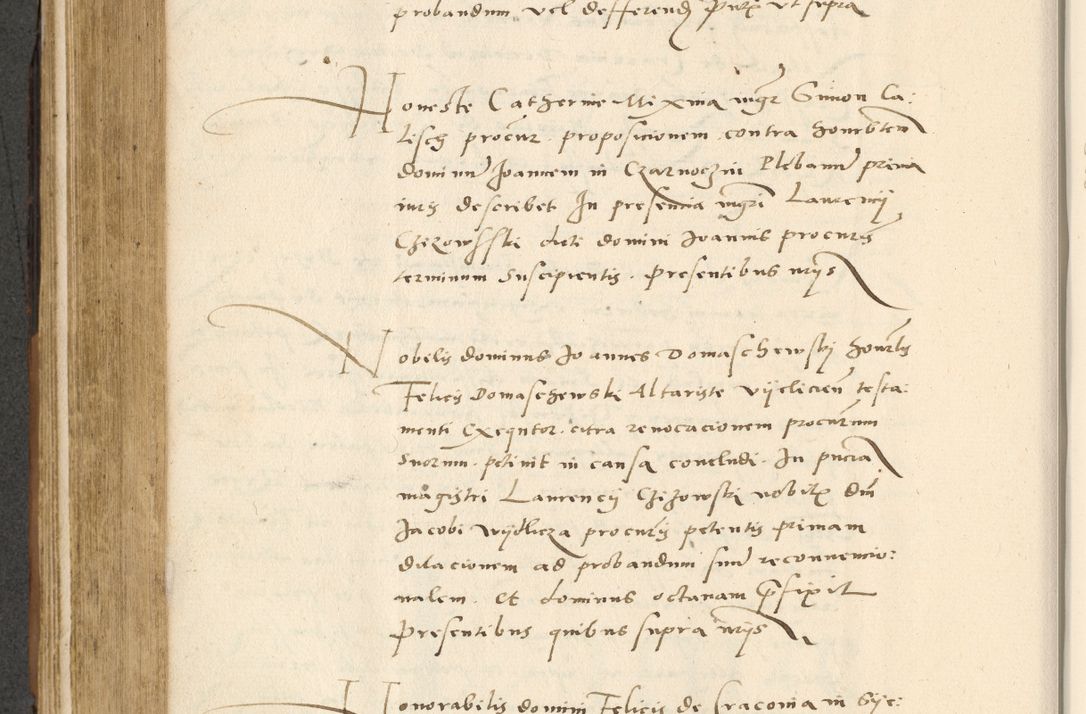 probandum vel defferend part ut supra
Honeste Catherine Mixnia mgr Simon Ca:
lisch procur. proposicionem contra honorbilem
dominum Joannem in Czarnoczin Plebanum prima
iuris describet In presencia mgri Laurency
Chizowsski dicti domini Joannis procuris
terminum suscipientis. presentibus nrijs
Nobelis dominus Joannes Domaschewskj honorlis
Felicis Domaschewski Altariste vijelicien testa:
menti Exequtor. citra revocacionem procurum
suorum. petivit in causa concludi. In pncia
magistri Laurencij Chizowskj nobilis dni
Jacobi wijdlicza procuris petentis primam
dilacionem ad probandum sue reconvencio:
nalem. Et dominus octavam prefixit
Presentibus quibus supra nrijs
Honorabilis domini Felicis de Cracovia in Bye: